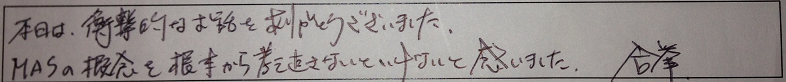 本日は、衝撃的なお話を有りがとうございました。
MASの概念を根本から考え直さないといけないと感じました。